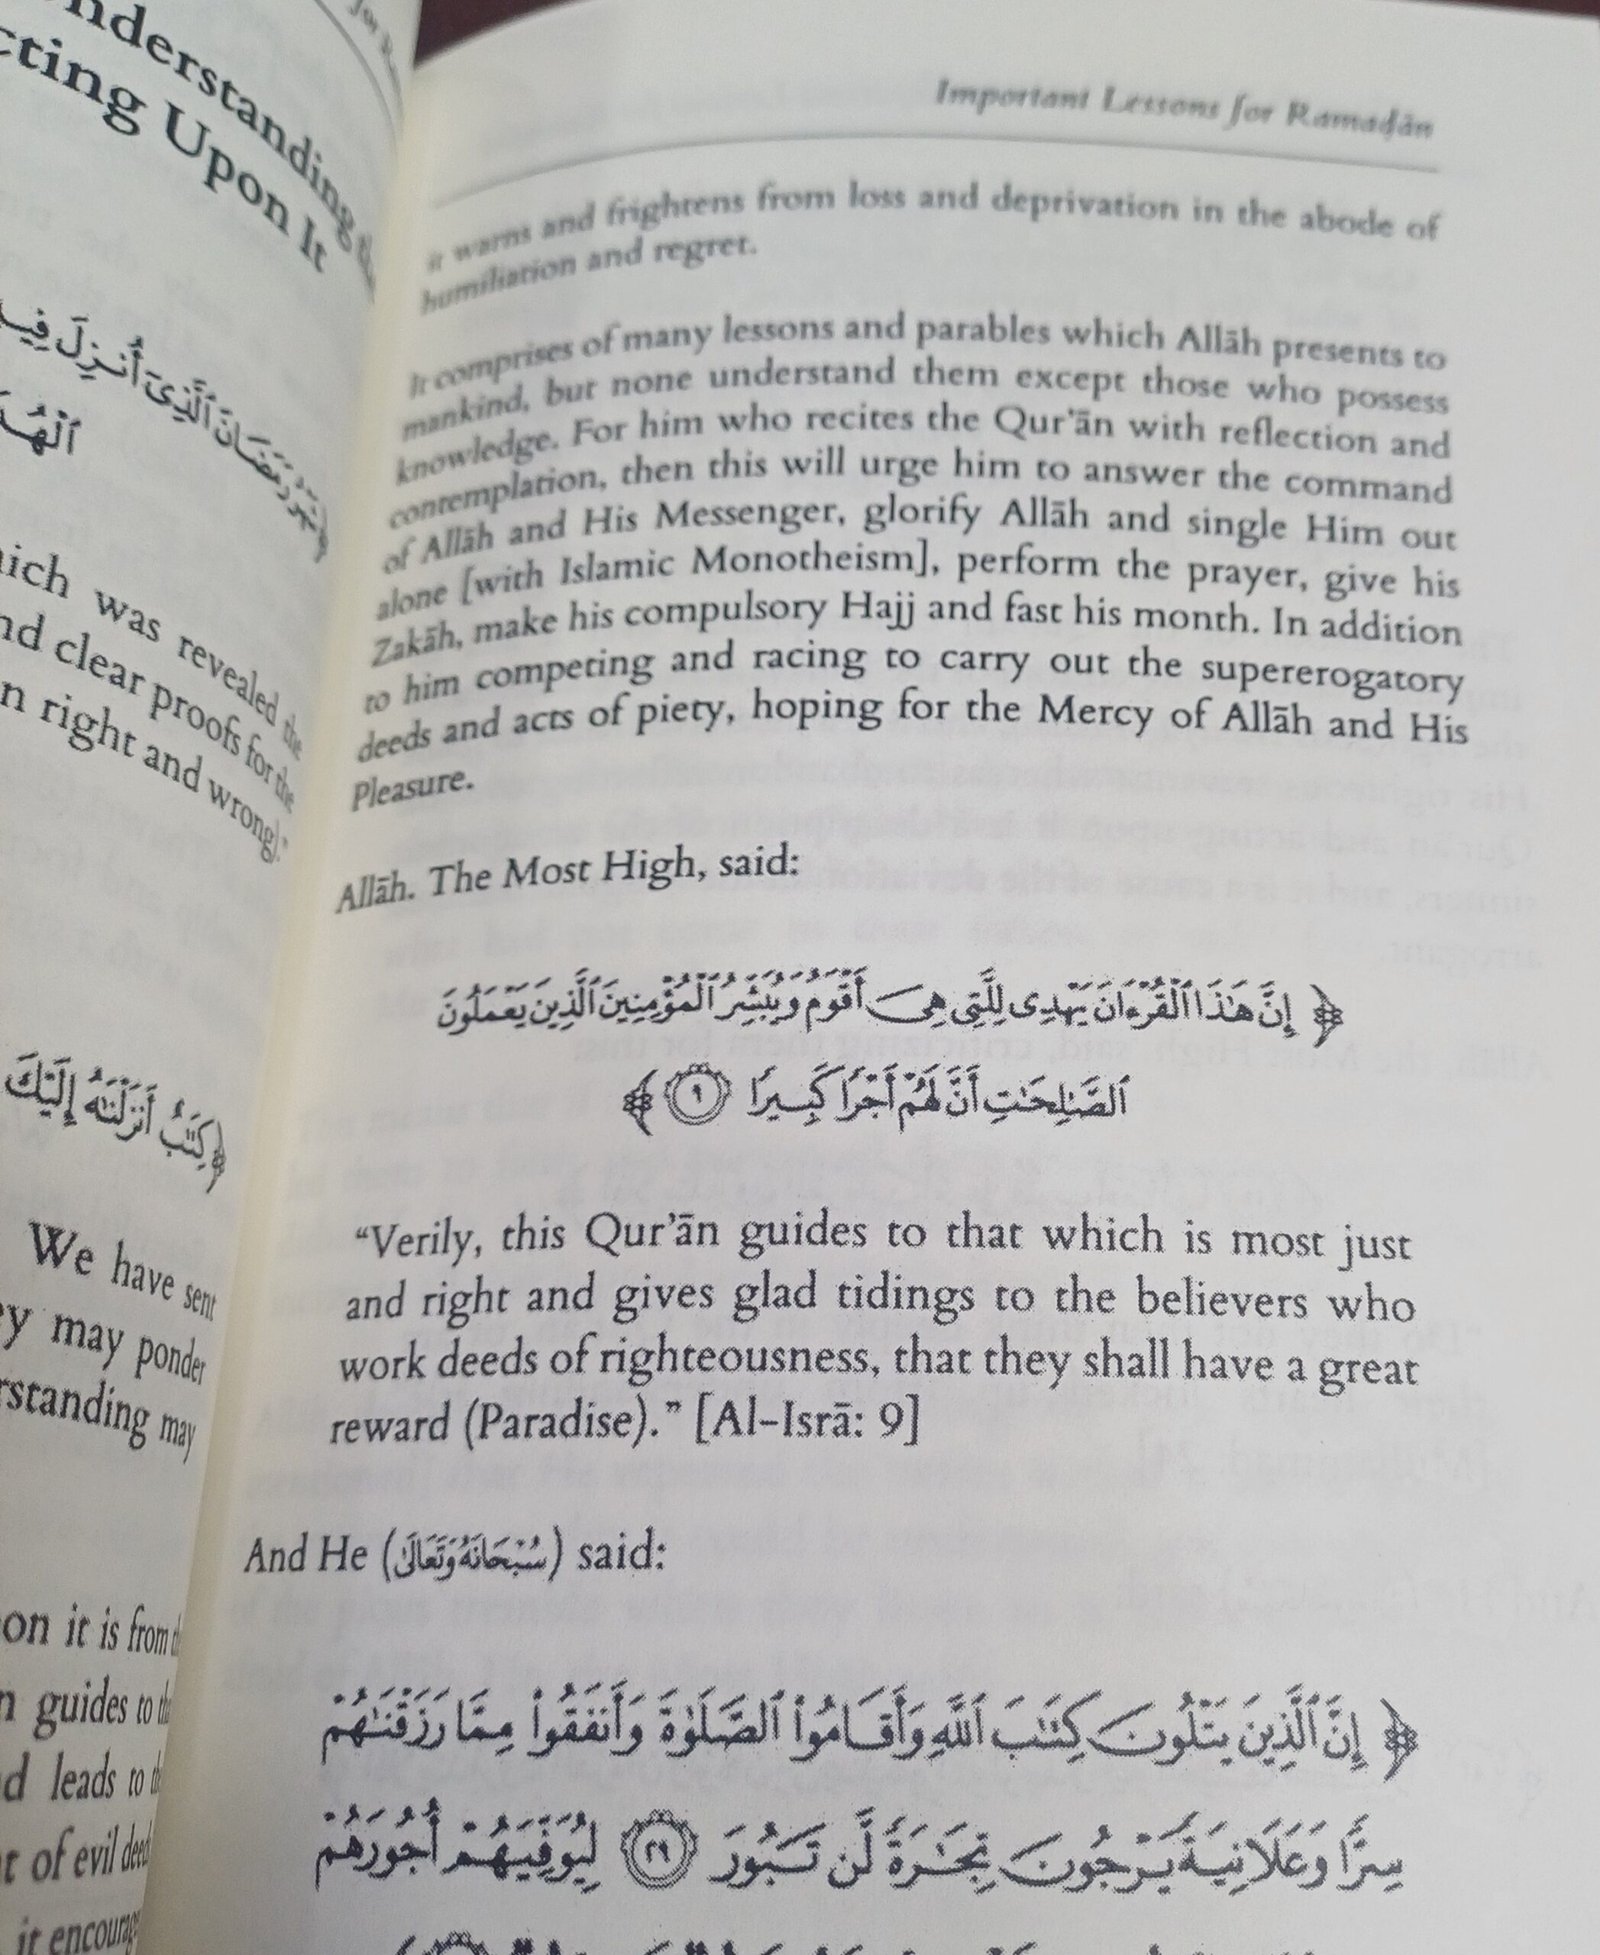 nderstanding
cting Upon It
ٱلَّذِىٓ أُنزِلَ فِيـ
hich was revealed the
nd clear proofs for the
n right and wrong)."
كِتَٰبٌ أَنزَلْنَٰهُ إِلَيْكَ
We have sent
ey may ponder
rstanding may
on it is from
n guides to
d leads to
t of evil deed
it encourag
Important Lessons for Ramaḍān
it warns and frightens from loss and deprivation in the abode of
humiliation and regret.
It comprises of many lessons and parables which Allāh presents to
mankind, but none understand them except those who possess
knowledge. For him who recites the Qur'ān with reflection and
contemplation, then this will urge him to answer the command
of Allāh and His Messenger, glorify Allāh and single Him out
alone [with Islamic Monotheism], perform the prayer, give his
Zakāh, make his compulsory Hajj and fast his month. In addition
to him competing and racing to carry out the supererogatory
deeds and acts of piety, hoping for the Mercy of Allāh and His
Pleasure.
Allāh. The Most High, said:
﴿ إِنَّ هَٰذَا ٱلْقُرْءَانَ يَهْدِى لِلَّتِى هِىَ أَقْوَمُ وَيُبَشِّرُ ٱلْمُؤْمِنِينَ ٱلَّذِينَ يَعْمَلُونَ
ٱلصَّٰلِحَٰتِ أَنَّ لَهُمْ أَجْرًا كَبِيرًا ٩ ﴾
"Verily, this Qur'ān guides to that which is most just
and right and gives glad tidings to the believers who
work deeds of righteousness, that they shall have a great
reward (Paradise)." [Al-Isrā: 9]
And He (سُبْحَانَهُ وَتَعَالَىٰ) said:
﴿ إِنَّ ٱلَّذِينَ يَتْلُونَ كِتَٰبَ ٱللَّهِ وَأَقَامُوا۟ ٱلصَّلَوٰةَ وَأَنفَقُوا۟ مِمَّا رَزَقْنَٰهُمْ
سِرًّا وَعَلَانِيَةً يَرْجُونَ تِجَٰرَةً لَّن تَبُورَ ٢٩ لِيُوَفِّيَهُمْ أُجُورَهُمْ